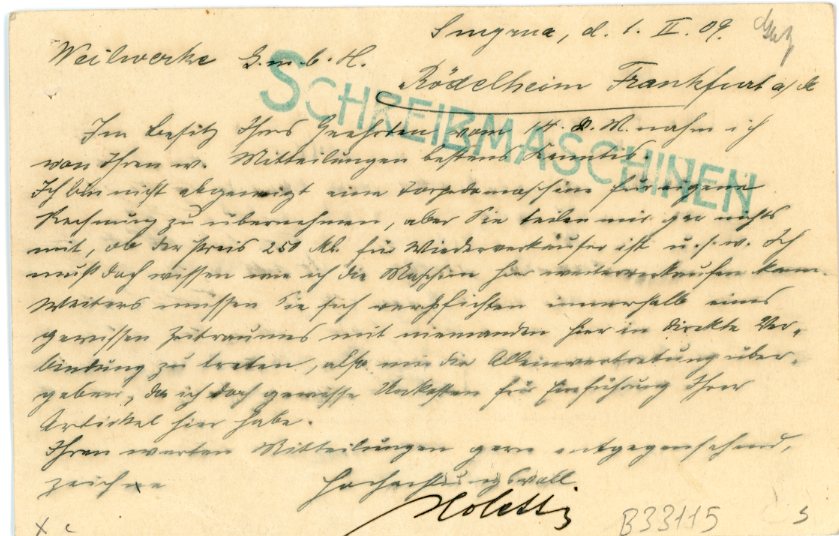 Smyrna, d. 1. II. 09.
Weilwerke G.m.b.H.
Rödelheim Frankfurt a/M
SCHREIBMASCHINEN
Im Besitz Ihres Geehrten vom 14. d. M. nahm ich
von Ihren w. Mitteilungen bestens Kenntnis.
Ich bin nicht abgeneigt eine Torpedomaschine für eigene
Rechnung zu übernehmen, aber Sie teilen mir gar nichts
mit, ob der Preis 250 Mk. für Wiederverkäufer ist u.s.w. Ich
muß doch wissen wie ich die Maschine hier weiterverkaufen kann.
Weiters müssen Sie sich verpflichten innerhalb eines
gewissen Zeitraumes mit niemanden hier in direkte Ver-
bindung zu treten, also mir die Alleinvertretung über-
geben, da ich doch gewisse Unkosten für Einführung Ihrer
Artickel hier habe.
Ihren werten Mitteilungen gern entgegensehend,
zeichne Hochachtungsvoll
B33115